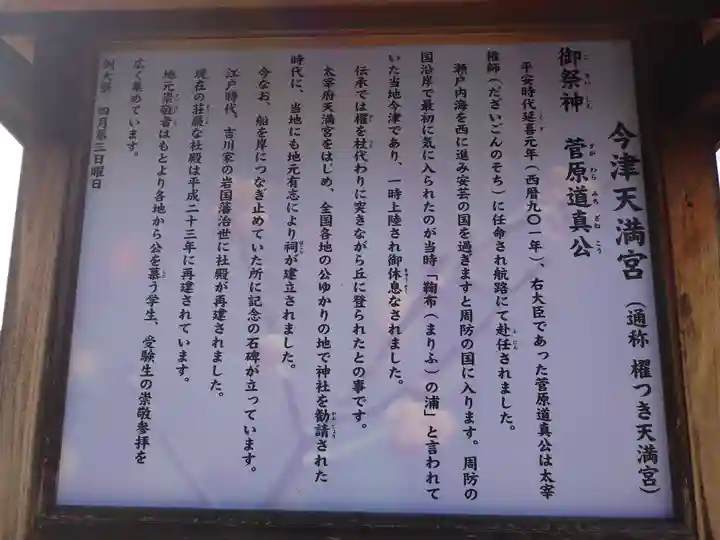 今津天満宮(通称 櫂つき天満宮)
御祭神 菅原道真公
平安時代延喜元年(西暦九〇一年)、右大臣であった菅原道真公は太宰
権師(だざいごんのそち)に任命され航路にて赴任されました。
瀬戸内海を西に進み安芸の国を過ぎますと周防の国に入ります。周防の
国沿岸で最初に気に入られたのが当時「鞠布(まりふ)の浦」と言われて
いた当地今津であり、一時上陸され御休息なされました。
伝承では櫂を杖代わりに突きながら丘に登られたとの事です。
太宰府天満宮をはじめ、全国各地の公ゆかりの地で神社を勧請された
時代に、当地にも地元有志により祠が建立されました。
今なお、船を岸につなぎ止めていた所に記念の石碑が立っています。
江戸時代、吉川家の岩国藩治世に社殿が再建されました。
現在の荘厳な社殿は平成二十三年に再建されています。
地元崇敬者はもとより各地から公を慕う学生、受験生の崇敬参拝を
広く集めています。
例大祭 四月第三日曜日